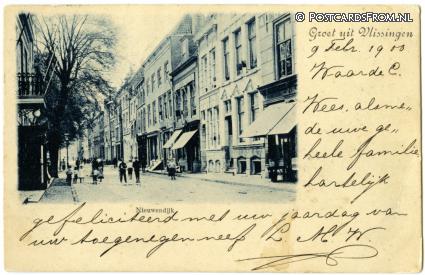 © PostcardsFrom.nl
Groet uit Vlissingen
9 Febr. 1900
Waarde C.
Wees. aleme-
de uwe ge-
heele familie
hartelijk
Nieuwendijk
gefeliciteerd met uw jaardag van
uw toegenegen neef L M W